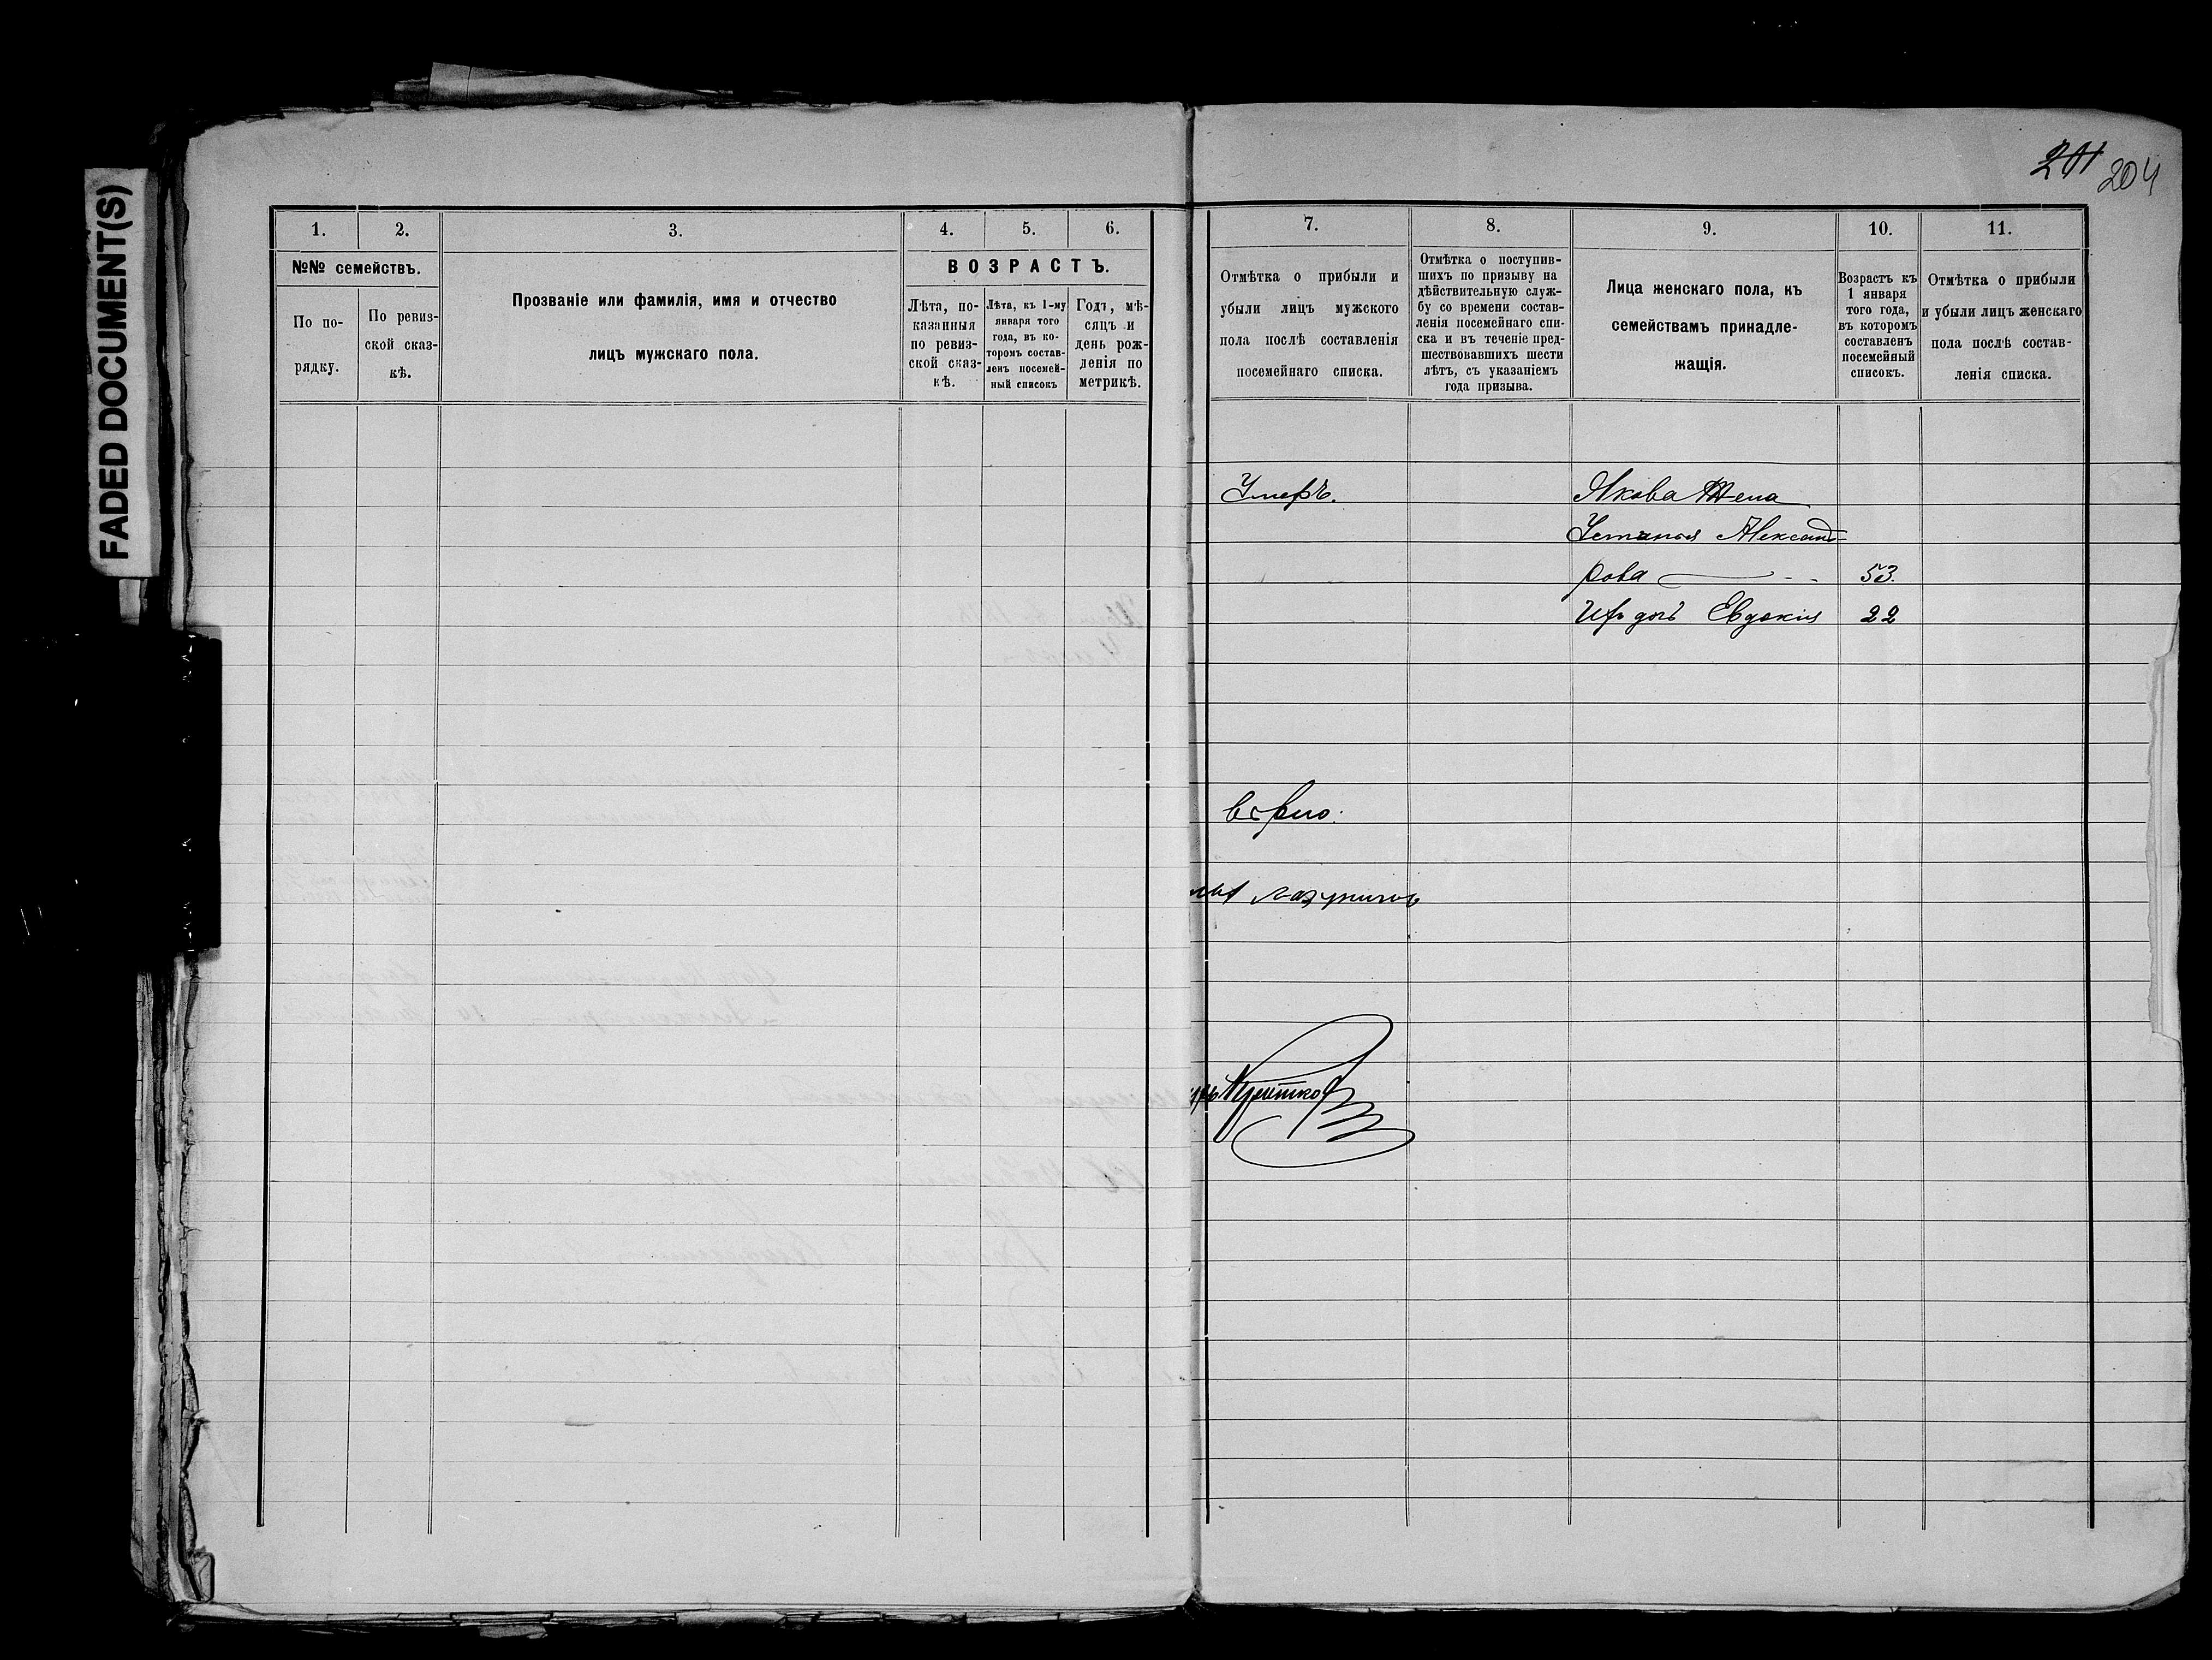 FADED DOCUMENT(S)
201 204
1. 2. 3. 4. 5. 6.
№№ семействъ.
По по-
рядку.
По ревиз-
ской сказ-
кѣ.
Прозваніе или фамилія, имя и отчество
лицъ мужскаго пола.
ВОЗРАСТЪ.
Лѣта, по-
казанныя
по ревиз-
ской сказ-
кѣ.
Лѣта, къ 1-му
января того
года, въ ко-
торомъ состав-
ленъ посемей-
ный списокъ
Годъ, мѣ-
сяцъ и
день рож-
денія по
метрикѣ.
7. 8. 9. 10. 11.
Отмѣтка о прибыли и
убыли лицъ мужского
пола послѣ составленія
посемейнаго списка.
Отмѣтка о поступив-
шихъ по призыву на
дѣйствительную служ-
бу со времени состав-
ленія посемейнаго спи-
ска и въ теченіе пред-
шествовавшихъ шести
лѣтъ, съ указаніемъ
года призыва.
Лица женскаго пола, къ
семействамъ принадле-
жащія.
Возрастъ къ
1 января
того года,
въ которомъ
составленъ
посемейный
списокъ.
Отмѣтка о прибыли
и убыли лицъ женскаго
пола послѣ состав-
ленія списка.
Умеръ. Якова Жена
Устинья Александ-
рова 53.
Ихъ дочь Евдокія 22
вѣрно: